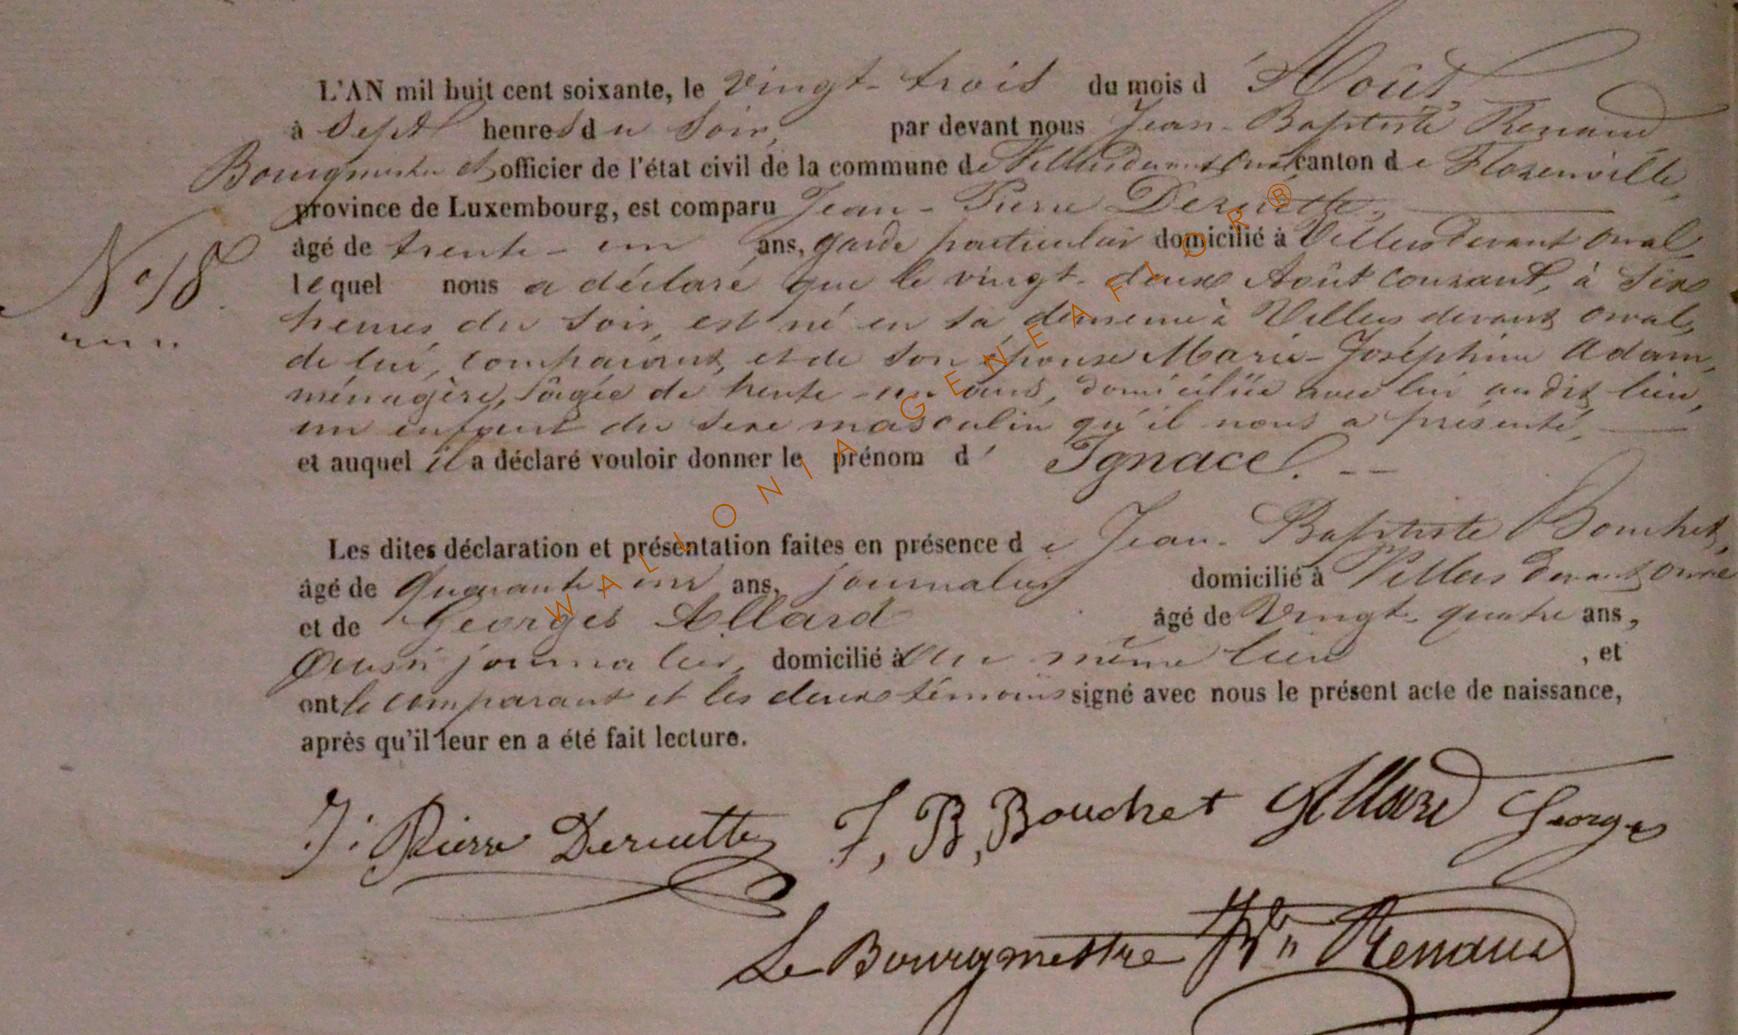 L'AN mil huit cent soixante, le vingt-trois du mois d'Août
à Sept heures du Soir, par devant nous Jean-Baptiste Renaud,
Bourgmestre et officier de l'état civil de la commune de Villers devant Orval, canton de Florenville,
province de Luxembourg, est comparu Jean-Pierre Deruette,
âgé de trente-un ans, garde particulier domicilié à Villers devant Orval,
lequel nous a déclaré que le vingt-deux Août courant, à Six
N° 18.
heures du soir, est né en sa demeure à Villers devant Orval,
de lui, comparant, et de son épouse Marie-Joséphine Adam,
ménagère, âgée de trente-un ans, domiciliée avec lui audit lieu,
un enfant du sexe masculin qu'il nous a présenté,
et auquel il a déclaré vouloir donner le prénom d'Ignace.
Les dites déclaration et présentation faites en présence de Jean-Baptiste Bouchet,
âgé de quarante un ans, journalier domicilié à Villers devant Orval
et de Georges Allard âgé de Vingt-quatre ans,
aussi journalier, domicilié au même lieu, et
ont le comparant et les deux témoins signé avec nous le présent acte de naissance,
après qu'il leur en a été fait lecture.
J. Pierre Deruette J, B, Bouchet Allard Georges
Le Bourgmestre Renaud
WALLONIA GENEAFLOR®